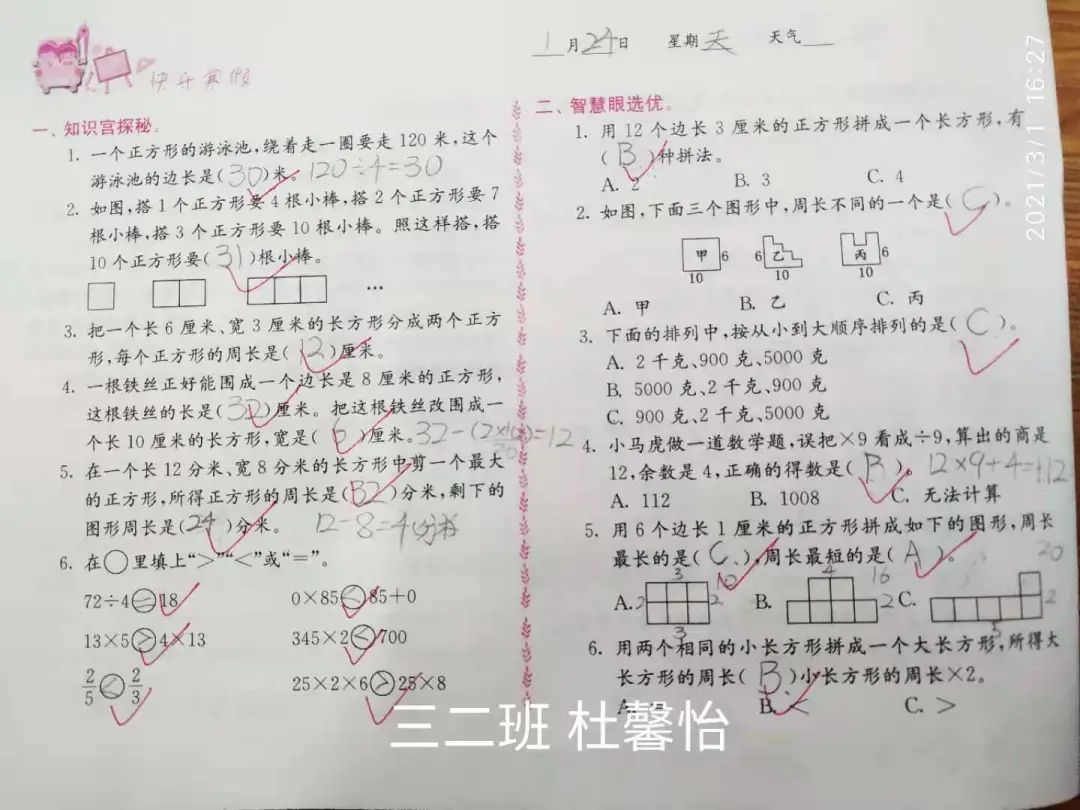 1月24日 星期天 天气
快乐寒假
一、知识宫探秘。
1. 一个正方形的游泳池,绕着走一圈要走 120 米,这个
游泳池的边长是(30)米。120÷4=30
2. 如图,搭 1 个正方形要 4 根小棒,搭 2 个正方形要 7
根小棒,搭 3 个正方形要 10 根小棒。照这样搭,搭
10 个正方形要(31)根小棒。
…
3. 把一个长 6 厘米、宽 3 厘米的长方形分成两个正方
形,每个正方形的周长是(12)厘米。
4. 一根铁丝正好能围成一个边长是 8 厘米的正方形,
这根铁丝的长是(32)厘米。把这根铁丝改围成一
个长 10 厘米的长方形,宽是(6)厘米。32-(2×10)=12
20
5. 在一个长 12 分米、宽 8 分米的长方形中剪一个最大
的正方形,所得正方形的周长是(32)分米,剩下的
图形周长是(24)分米。 12-8=4(分米)
6. 在○里填上“>”“<”或“=”。
72÷4=18 0×85<85+0
13×5>4×13 345×2<700
2/5<2/3 25×2×6>25×8
二、智慧眼选优。
1. 用 12 个边长 3 厘米的正方形拼成一个长方形,有
(B)种拼法。
A. 2 B. 3 C. 4
2. 如图,下面三个图形中,周长不同的一个是(C)。
甲 6 6 乙 丙 6
10 10 10
A. 甲 B. 乙 C. 丙
3. 下面的排列中,按从小到大顺序排列的是(C)。
A. 2 千克、900 克、5000 克
B. 5000 克、2 千克、900 克
C. 900 克、2 千克、5000 克
4. 小马虎做一道数学题,误把×9 看成÷9,算出的商是
12,余数是 4,正确的得数是(B)。12×9+4=112
A. 112 B. 1008 C. 无法计算
5. 用 6 个边长 1 厘米的正方形拼成如下的图形,周长
最长的是(C、),周长最短的是(A)。
3 10 4 16 20
A. 2 2 B. 2 C. 2
3 5
6. 用两个相同的小长方形拼成一个大长方形,所得大
长方形的周长(B)小长方形的周长×2。
A. = B. < C. >
三二班 杜馨怡
2021/3/1 16:27